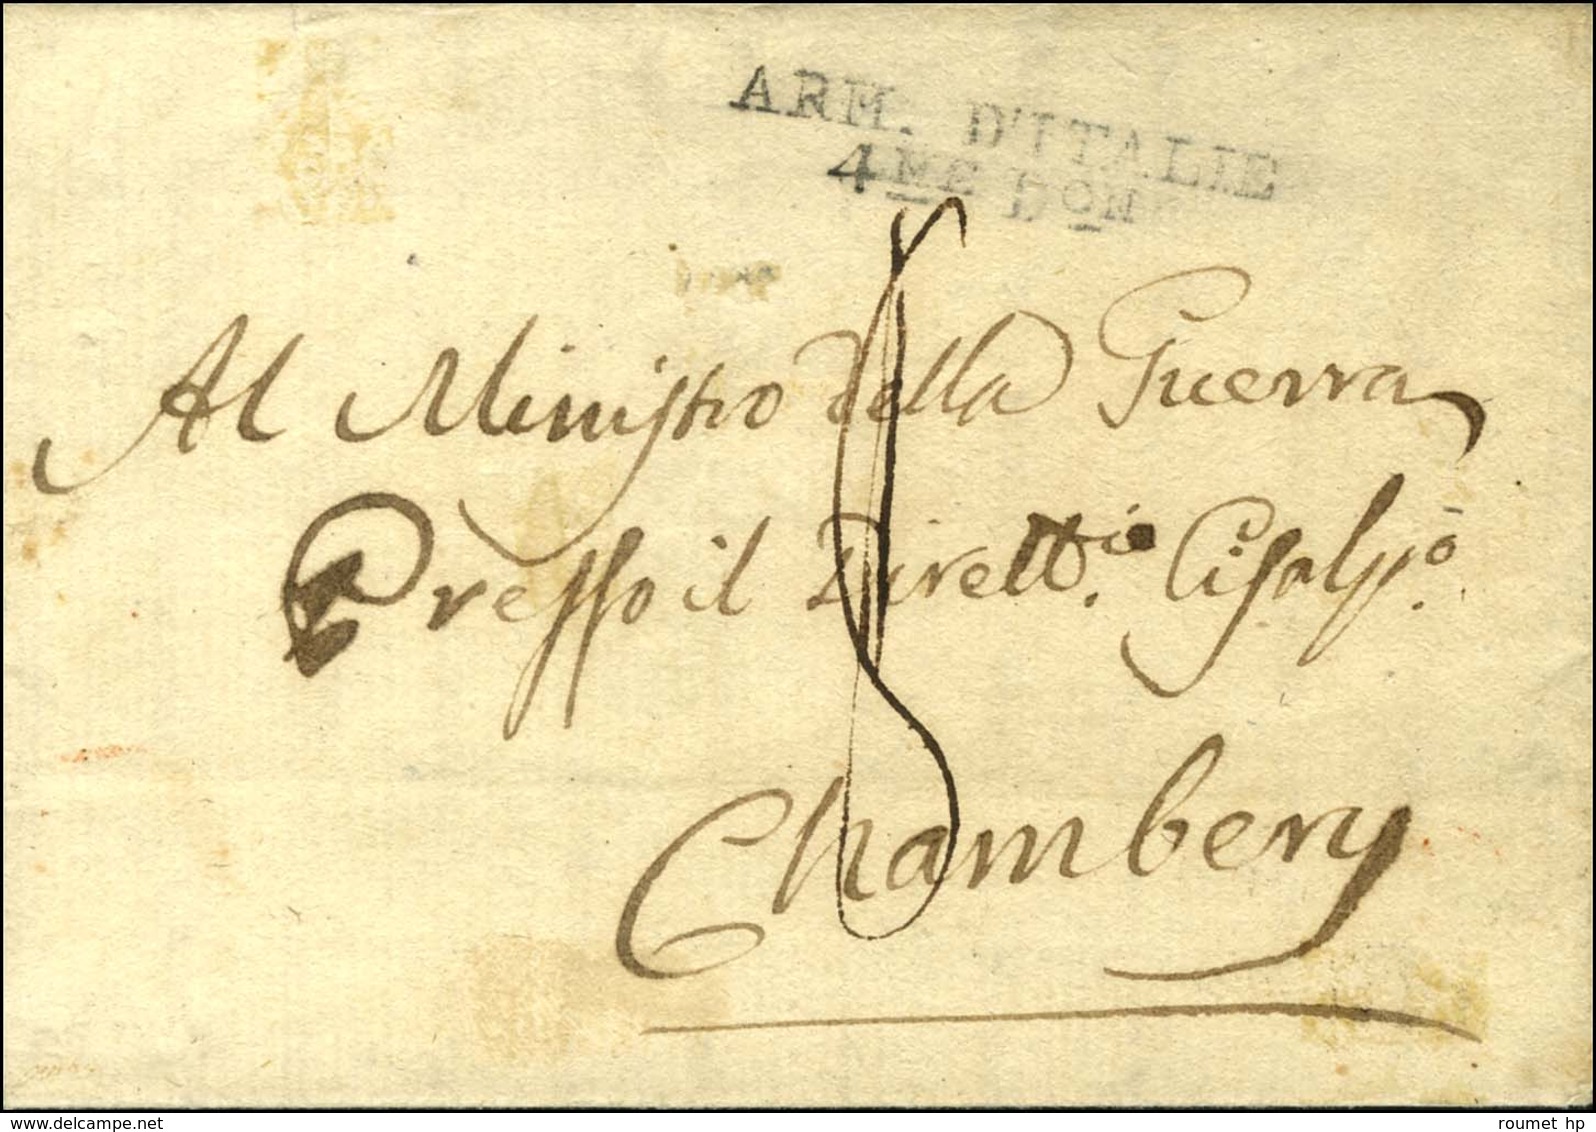 ARM. D'ITALIE
4ME DON
Al Ministro della Guerra
Presso il Dirett.io Cisalp.o
Chambery
www.delcampe.net
roumet hp